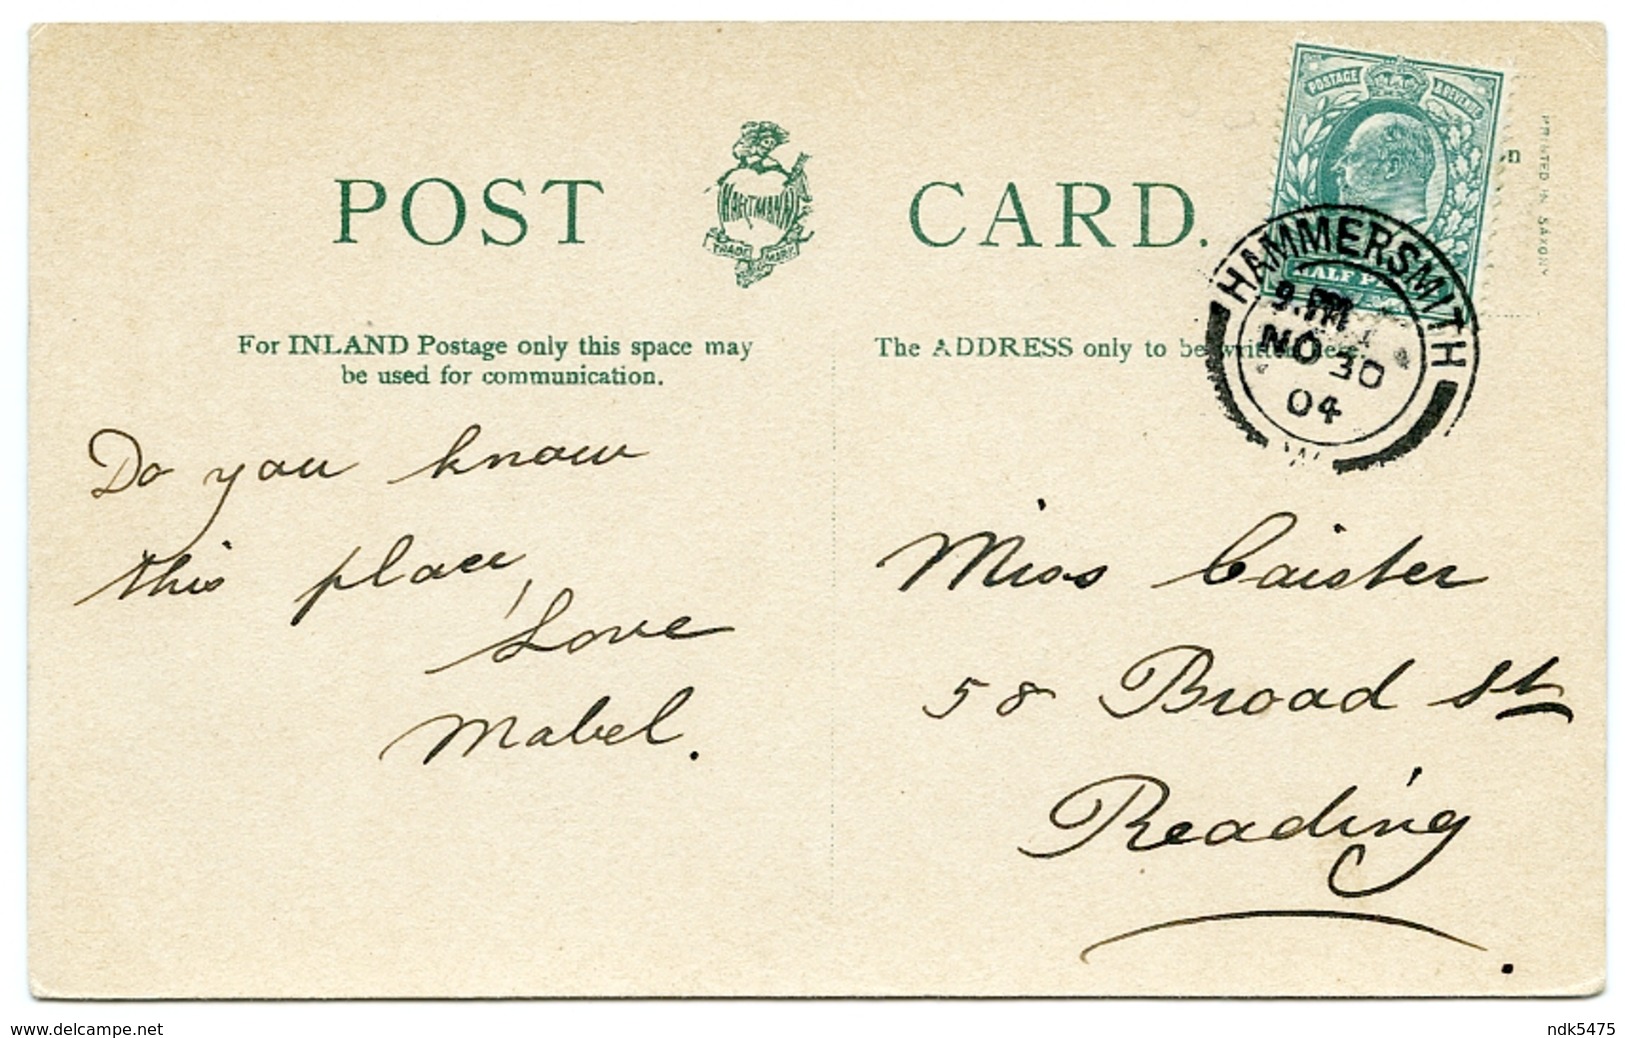 POST CARD.
HARTMANN
TRADE MARK
POSTAGE & REVENUE
HALF P
PRINTED IN SAXONY
HAMMERSMITH
9. PM
NO 30
04
W
For INLAND Postage only this space may
be used for communication.
The ADDRESS only to be written here.
Do you know
this place,
Love
Mabel.
Miss Caister
58 Broad St
Reading.
www.delcampe.net
ndk5475